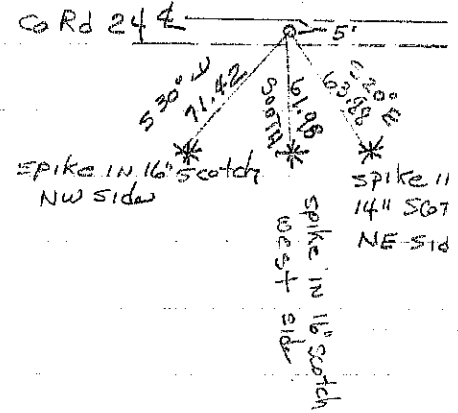 Co Rd 24 ℄
5'
S 30° W
71.42
SOUTH
61.98
S 20° E
63.88
spike IN 16" Scotch
NW Side
spike IN 16" Scotch
west side
spike
14"
NE